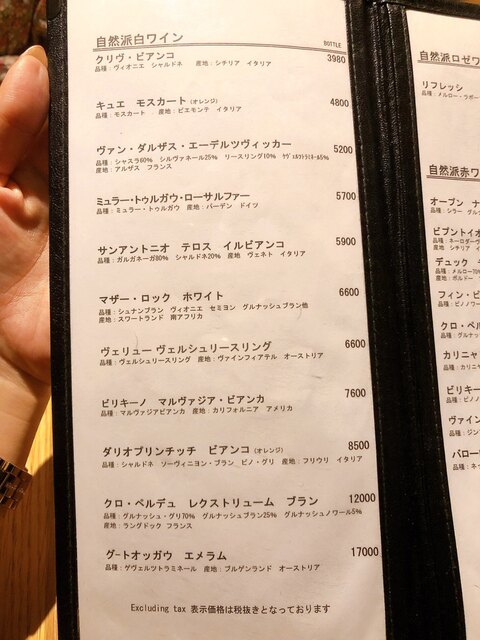 自然派白ワイン BOTTLE
クリヴ・ビアンコ 3980
品種：ヴィオニエ シャルドネ 産地：シチリア イタリア
キュエ モスカート（オレンジ） 4800
品種：モスカート 産地：ピエモンテ イタリア
ヴァン・ダルザス・エーデルツヴィッカー 5200
品種：シャスラ60% シルヴァネール25% リースリング10% ｹﾞｳﾞｭﾙﾂﾄﾗﾐﾈｰﾙ5%
産地：アルザス フランス
ミュラー・トゥルガウ・ローサルファー 5700
品種：ミュラー・トゥルガウ 産地：バーデン ドイツ
サンアントニオ テロス イルビアンコ 5900
品種：ガルガネーガ80% シャルドネ20% 産地 ヴェネト イタリア
マザー・ロック ホワイト 6600
品種：シュナンブラン ヴィオニエ セミヨン グルナッシュブラン他
産地：スワートランド 南アフリカ
ヴェリュー ヴェルシュリースリング 6600
品種：ヴェルシュリースリング 産地：ヴァインフィアテル オーストリア
ビリキーノ マルヴァジア・ビアンカ 7600
品種：マルヴァジアビアンカ 産地：カリフォルニア アメリカ
ダリオプリンチッチ ビアンコ（オレンジ） 8500
品種：シャルドネ ソーヴィニヨン・ブラン ピノ・グリ 産地：フリウリ イタリア
クロ・ペルデュ レクストリューム ブラン 12000
品種：グルナッシュ・グリ70% グルナッシュブラン25% グルナッシュノワール5%
産地：ラングドック フランス
グートオッガウ エメラム 17000
品種：ゲヴェルツトラミネール 産地：ブルゲンランド オーストリア
Excluding tax 表示価格は税抜きとなっております
自然派ロゼワ
リフレッシ
品種：メルロー・ラボー
自然派赤ワ
オープン ナ
品種：シラー グル
ビブントイオ
品種：ネーロダーヴ
産地：シチリア イ
デュック
品種：メルロー70%
産地：ボルドー
フィン・ピ
品種：ピノノワ
クロ・ペル
品種：グルナッ
カリニャ
品種：カリニャ
ビリキー
品種：ピノノ
ヴァイン
品種：ジン
バロー
品種：ネッ